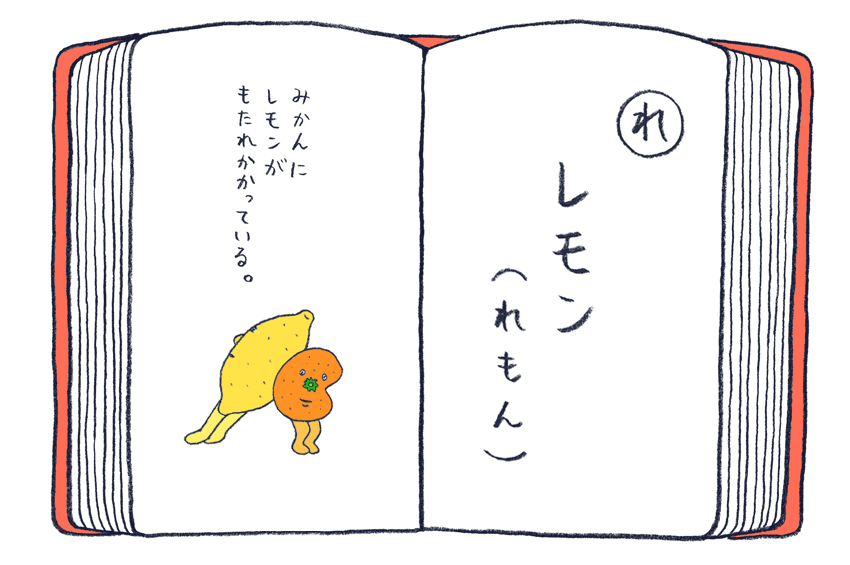 れ
レモン
(れもん)
みかんに
レモンが
もたれかかっている。